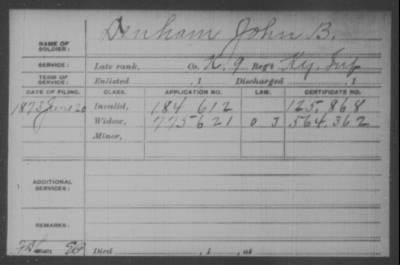 NAME OF SOLDIER: Denham John B.
SERVICE: Late rank, Co. K. 9 Reg't Ky. Inf
TERM OF SERVICE: Enlisted , 1 Discharged , 1
DATE OF FILING. CLASS. APPLICATION NO. LAW. CERTIFICATE NO.
1873 June 20 Invalid, 184 612 125,868
Widow, 775621 O J 564,362
Minor,
ADDITIONAL SERVICES:
REMARKS:
Died , 1 , at